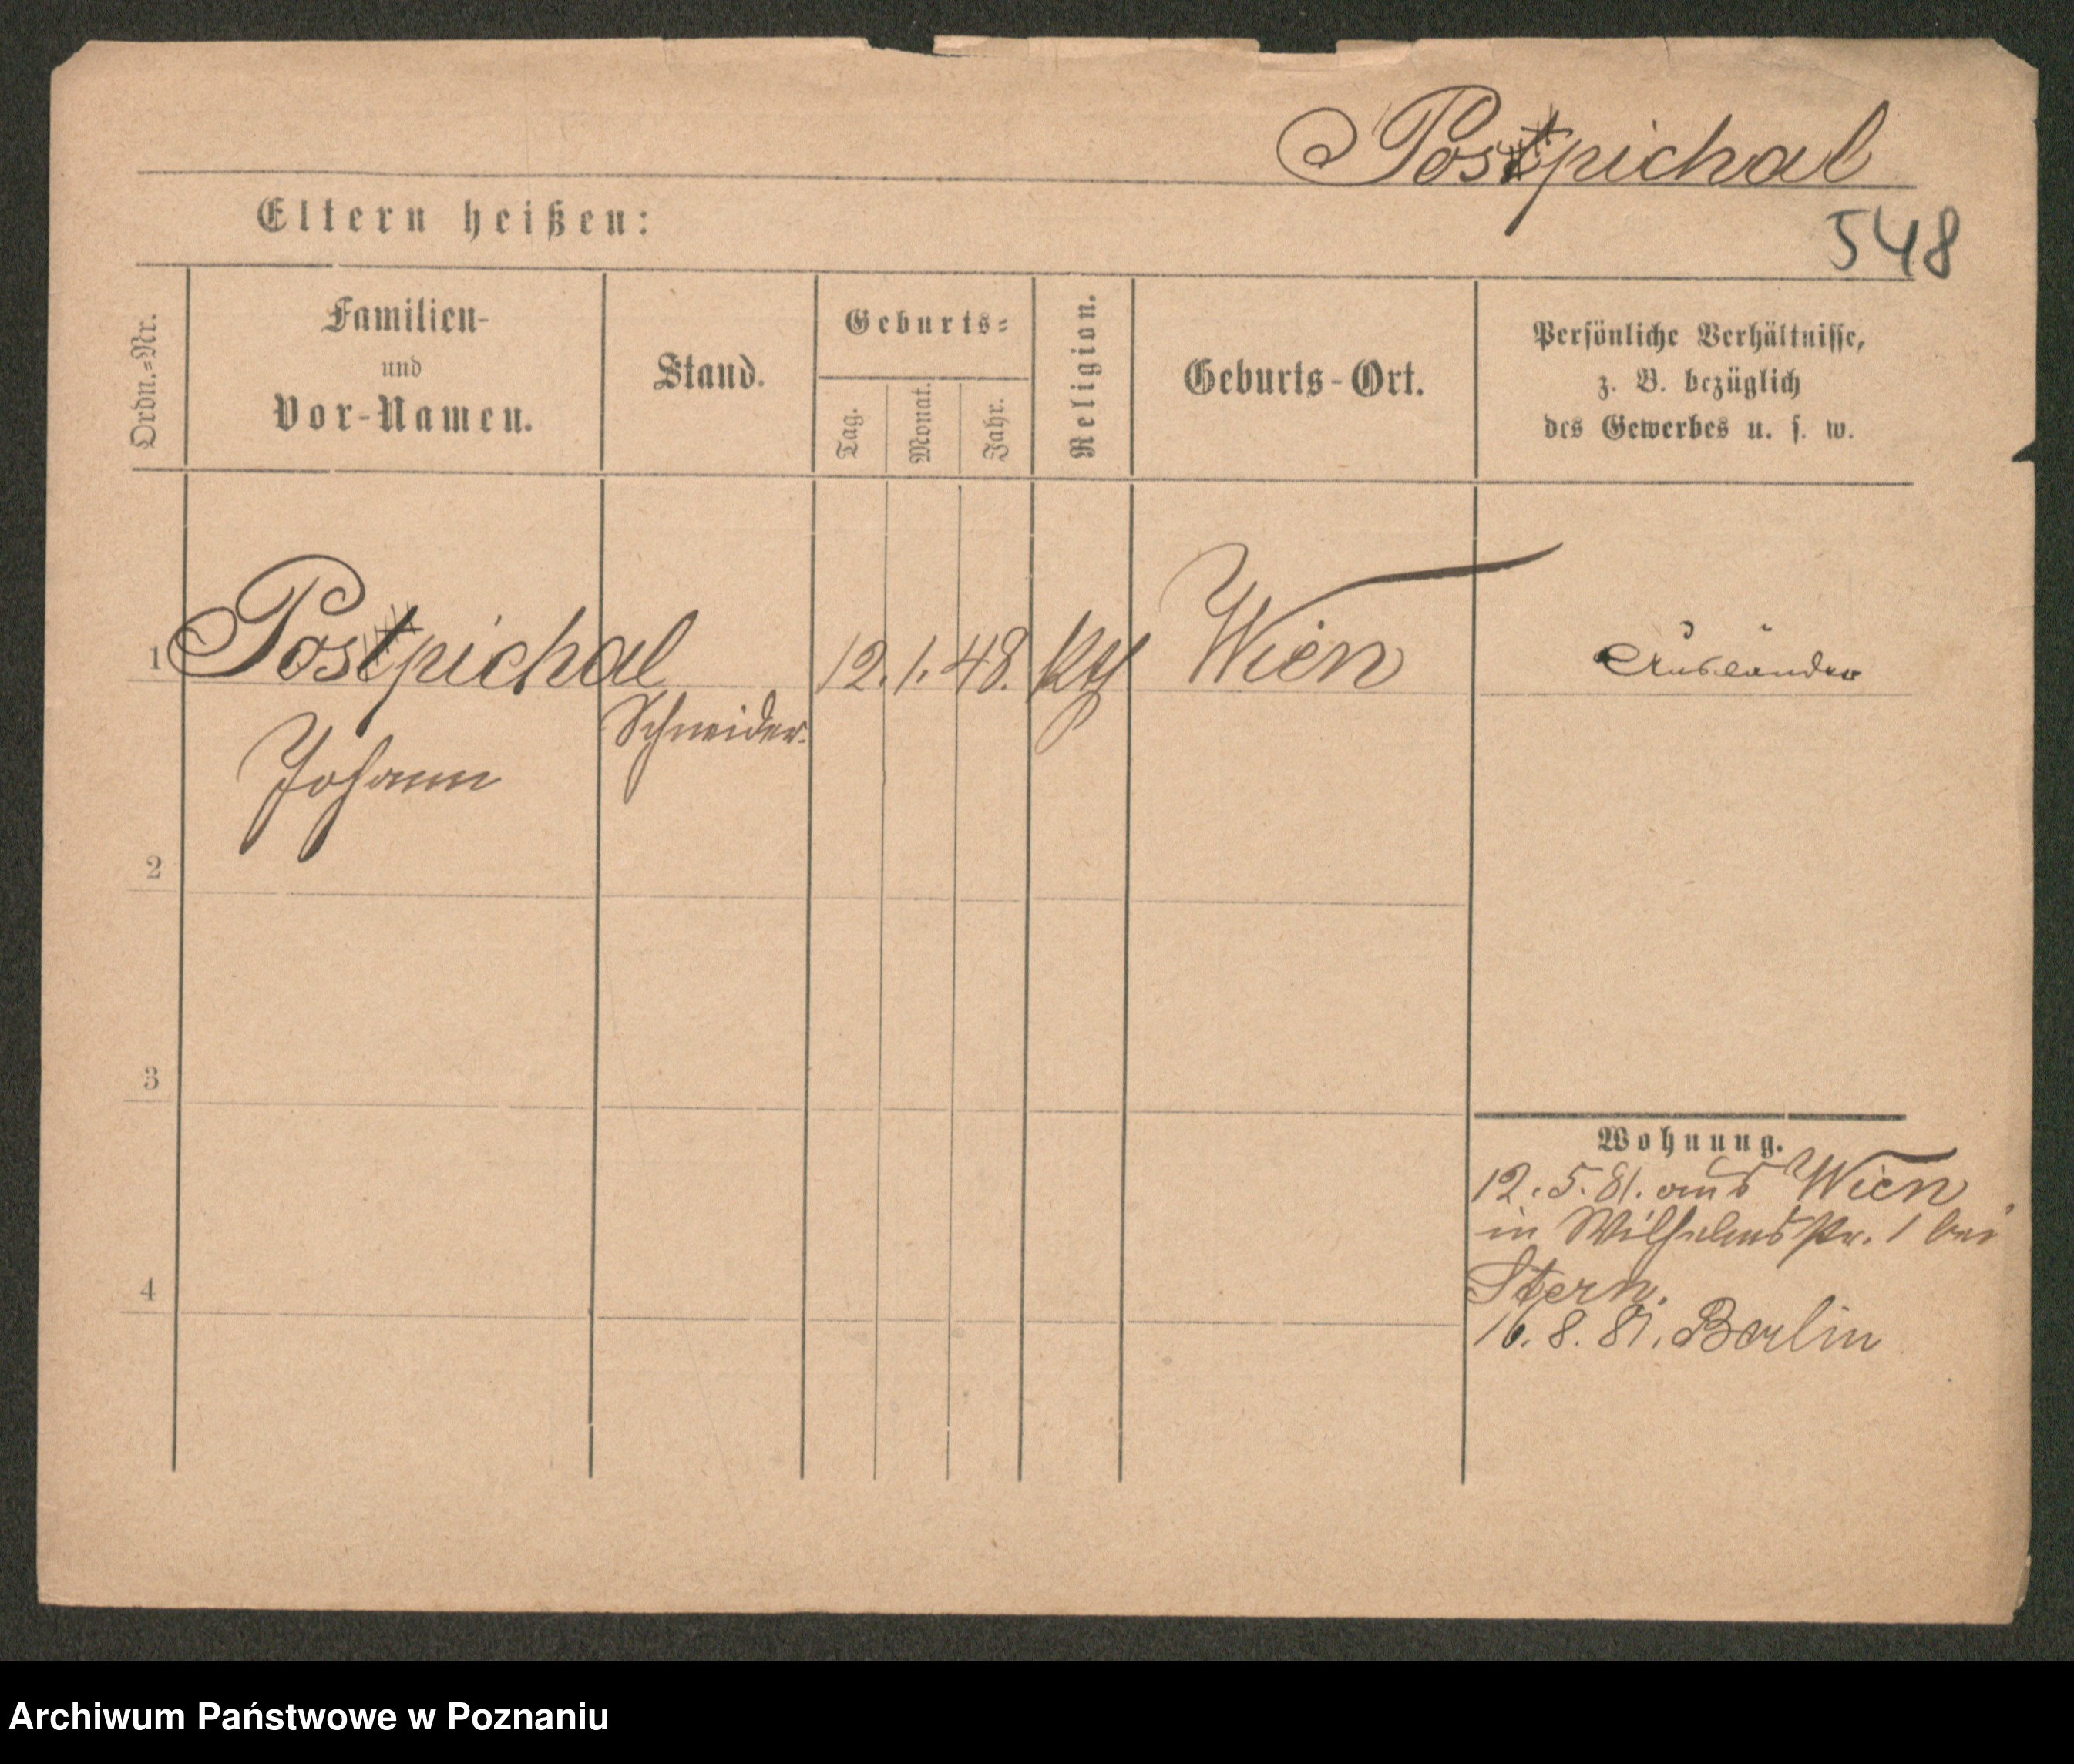 Postpichal
548
Eltern heißen:
Ordn.=Nr.
Familien-
und
Vor-Namen.
Stand.
Geburts=
Tag.
Monat.
Jahr.
Religion.
Geburts-Ort.
Persönliche Verhältnisse,
z. B. bezüglich
des Gewerbes u. s. w.
1 Postpichal 12. 1. 48. Kth Wien Ausländer
Schneider.
Johann
2
3
4
Wohnung.
12. 5. 81. aus Wien
in Wilhelmstr. 1 bei
Stern.
16. 8. 81. Berlin
Archiwum Państwowe w Poznaniu